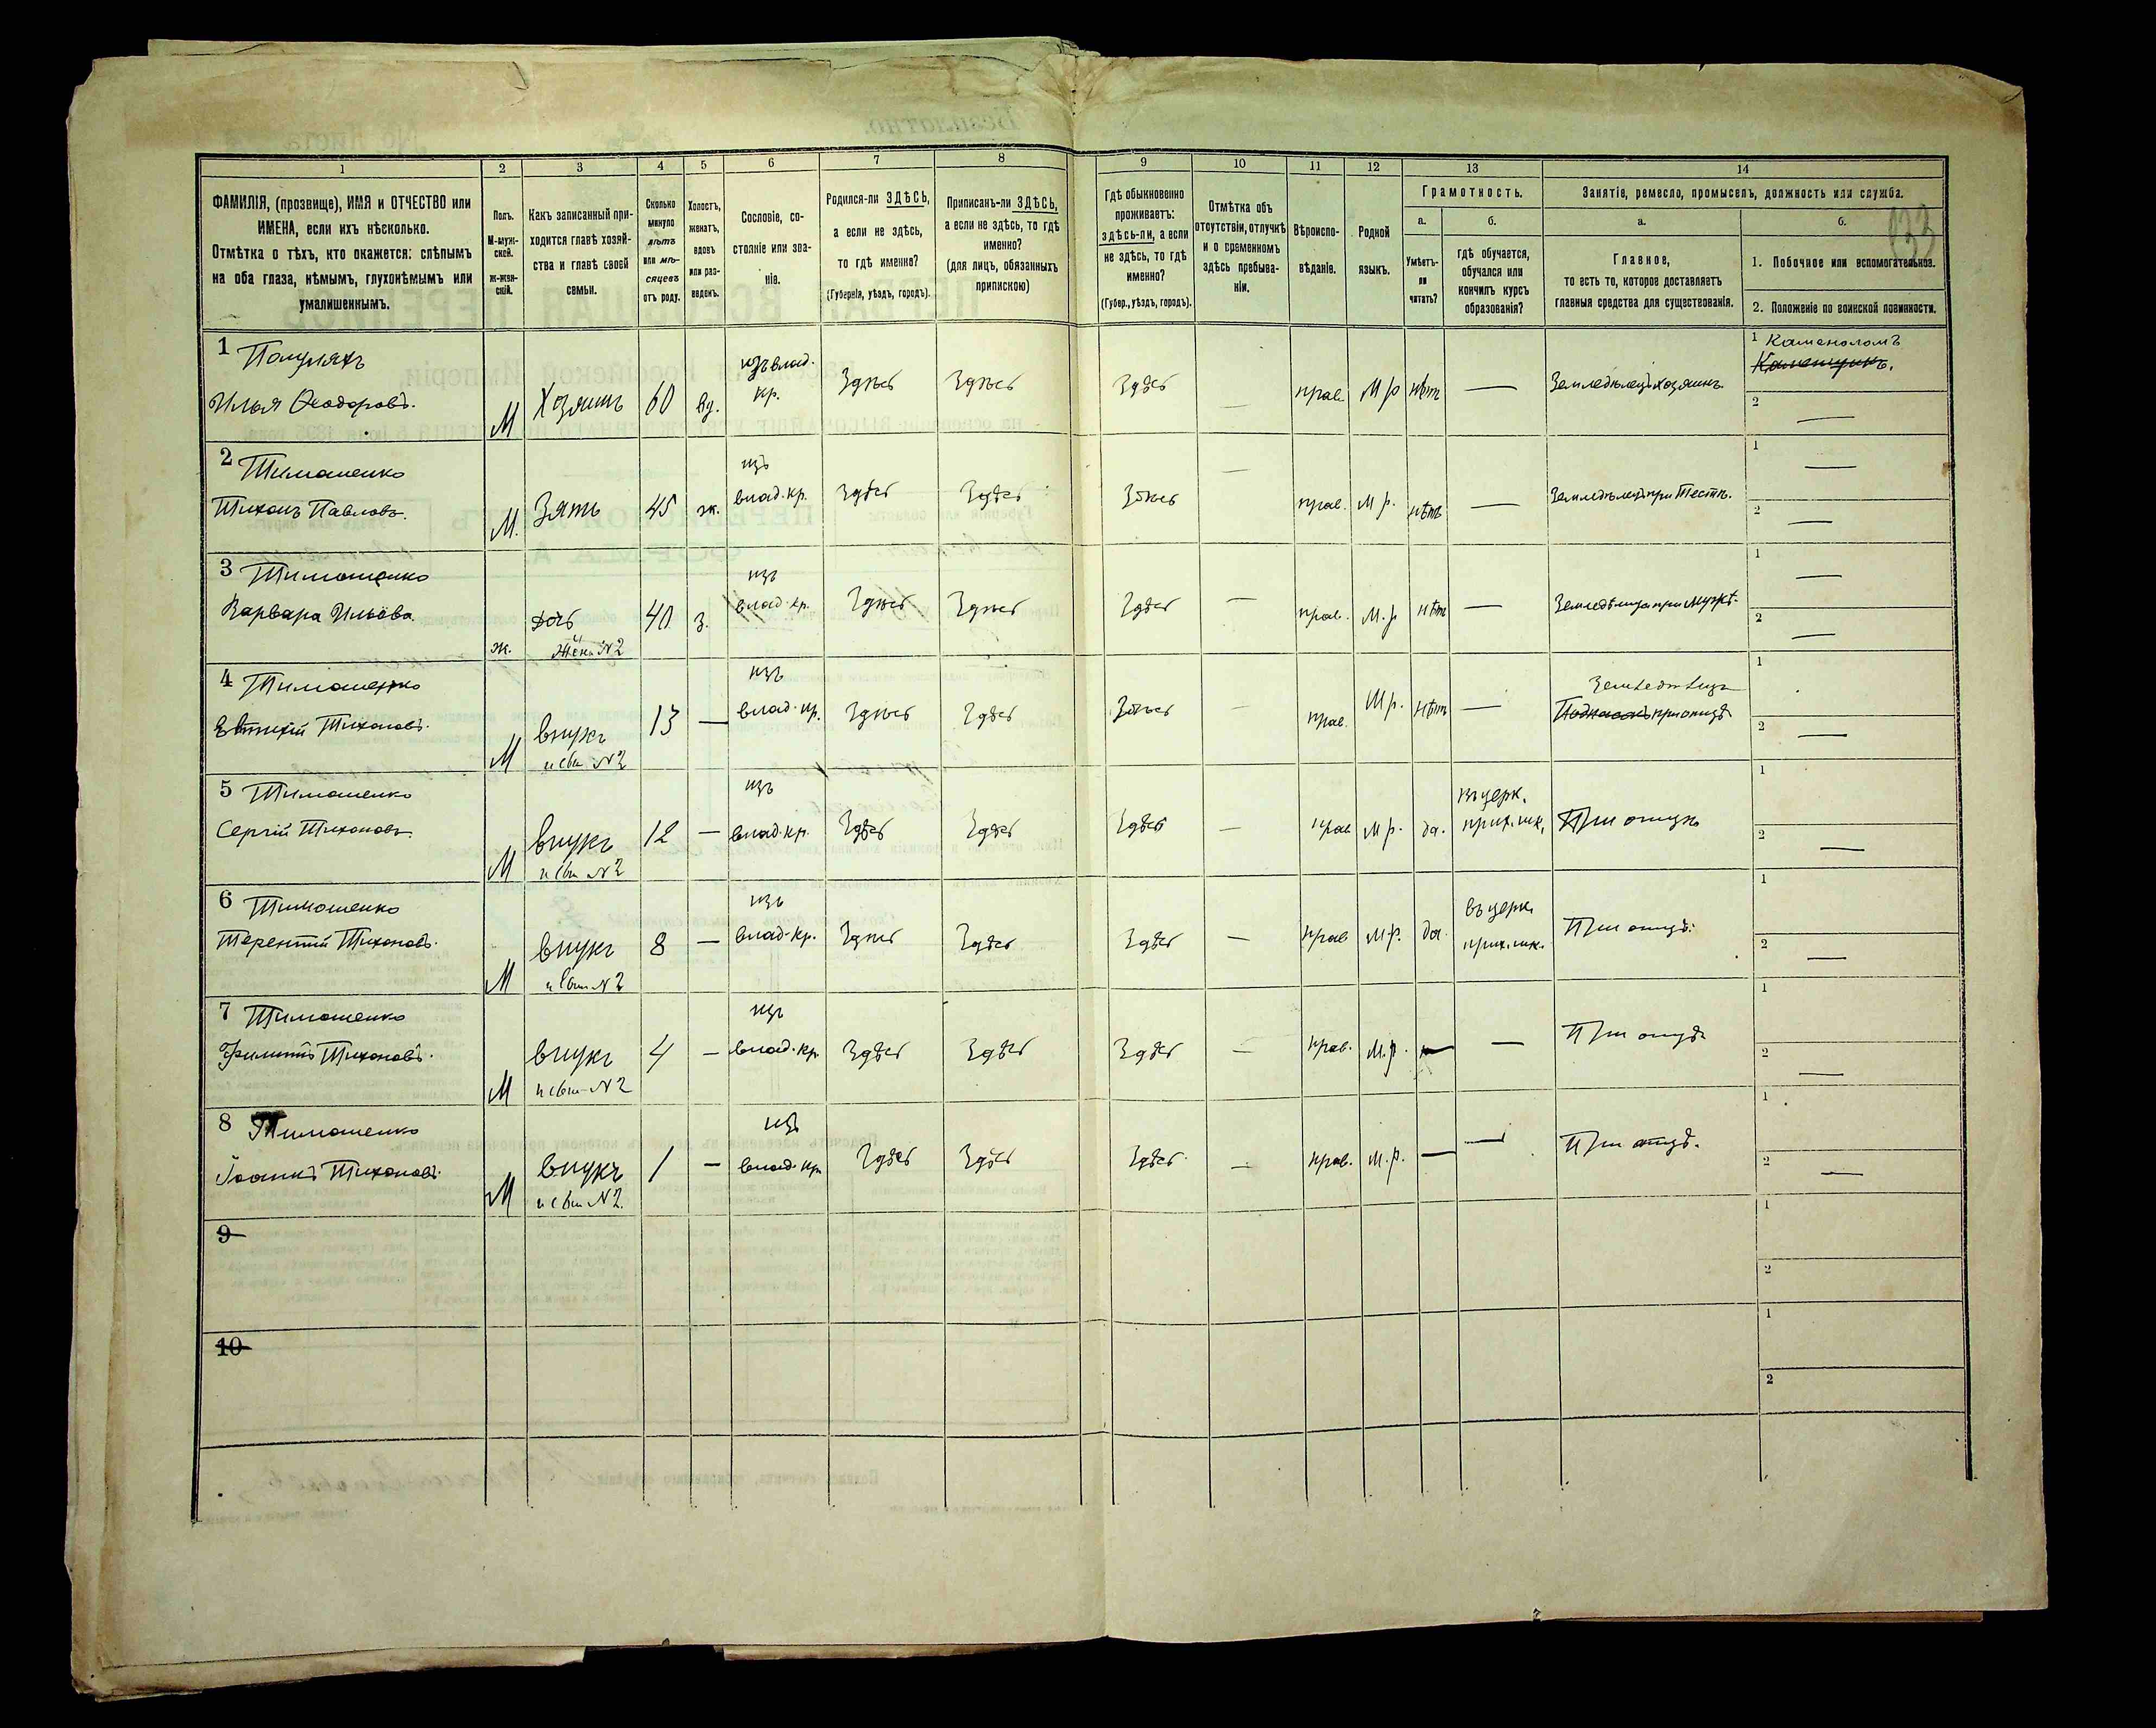 133
1
2
3
4
5
6
7
8
9
10
11
12
13
14
ФАМИЛІЯ, (прозвище), ИМЯ и ОТЧЕСТВО или
ИМЕНА, если ихъ нѣсколько.
Отмѣтка о тѣхъ, кто окажется: слѣпымъ
на оба глаза, нѣмымъ, глухонѣмымъ или
умалишеннымъ.
Полъ.
М-муж-
ской.
ж-жен-
скій.
Какъ записанный при-
ходится главѣ хозяй-
ства и главѣ своей
семьи.
Сколько
минуло
лѣтъ
или мѣ-
сяцевъ
отъ роду.
Холостъ,
женатъ,
вдовъ
или раз-
веденъ.
Сословіе, со-
стояніе или зва-
ніе.
Родился-ли ЗДѢСЬ,
а если не здѣсь,
то гдѣ именно?
(Губернія, уѣздъ, городъ).
Приписанъ-ли ЗДѢСЬ,
а если не здѣсь, то гдѣ
именно?
(для лицъ, обязанныхъ
припискою)
Гдѣ обыкновенно
проживаетъ:
здѣсь-ли, а если
не здѣсь, то гдѣ
именно?
(Губер., уѣздъ, городъ).
Отмѣтка объ
отсутствіи, отлучкѣ
и о временномъ
здѣсь пребыва-
ніи.
Вѣроиспо-
вѣданіе.
Родной
языкъ.
Грамотность.
а.
Умѣетъ-
ли
читать?
б.
гдѣ обучается,
обучался или
кончилъ курсъ
образованія?
Занятіе, ремесло, промыселъ, должность или служба.
а.
Главное,
то есть то, которое доставляетъ
главныя средства для существованія.
б.
1. Побочное или вспомогательное.
2. Положеніе по воинской повинности.
1 Полуляхъ
Илья Ѳеодоровъ. М Хозяинъ 60 вд. изъ влад. кр. Здѣсь Здѣсь Здѣсь — прав. М р нѣтъ — Земледѣлецъ хозяинъ 1 Каменоломъ
Каменщикъ.
2 —
2 Тимошенко
Тихонъ Павловъ. М. Зять 45 ж. изъ влад. кр. Здѣсь Здѣсь Здѣсь — прав. М р. нѣтъ — Земледѣлецъ при Тестѣ. 1 —
2 —
3 Тимошенко
Варвара Ильёва ж. дочь 40 з. изъ влад. кр. Здѣсь Здѣсь Здѣсь — прав. М. р нѣтъ — Земледѣлица при Мужѣ. 1 —
и Жена N 2
2 —
4 Тимошенко
Евтихій Тихоновъ. М внукъ 13 — изъ влад. кр. Здѣсь Здѣсь Здѣсь — прав. М р. нѣтъ — Земледѣлецъ
Подпасокъ при отцѣ 1
и сын N 2
2 —
5 Тимошенко
Сергій Тихоновъ. М внукъ 12 — изъ влад. кр. Здѣсь Здѣсь Здѣсь — прав М р. да. въ церк. прих. шк. При отцѣ 1
и сын N 2
2 —
6 Тимошенко
Терентій Тихоновъ. М внукъ 8 — изъ влад. кр. Здѣсь Здѣсь Здѣсь — прав М р. да. въ церк. прих. шк. При отцѣ. 1
и сын N 2
2 —
7 Тимошенко
Филиппъ Тихоновъ. М внукъ 4 — изъ влад. кр. Здѣсь Здѣсь Здѣсь — прав. М. р. — — При отцѣ 1
и сын N 2
2 —
8 Тимошенко
Іоаннъ Тихоновъ. М внукъ 1 — изъ влад. кр Здѣсь Здѣсь Здѣсь — прав. М. р. — — При отцѣ. 1
и сын N 2.
2 —
9
1
2
10
1
2